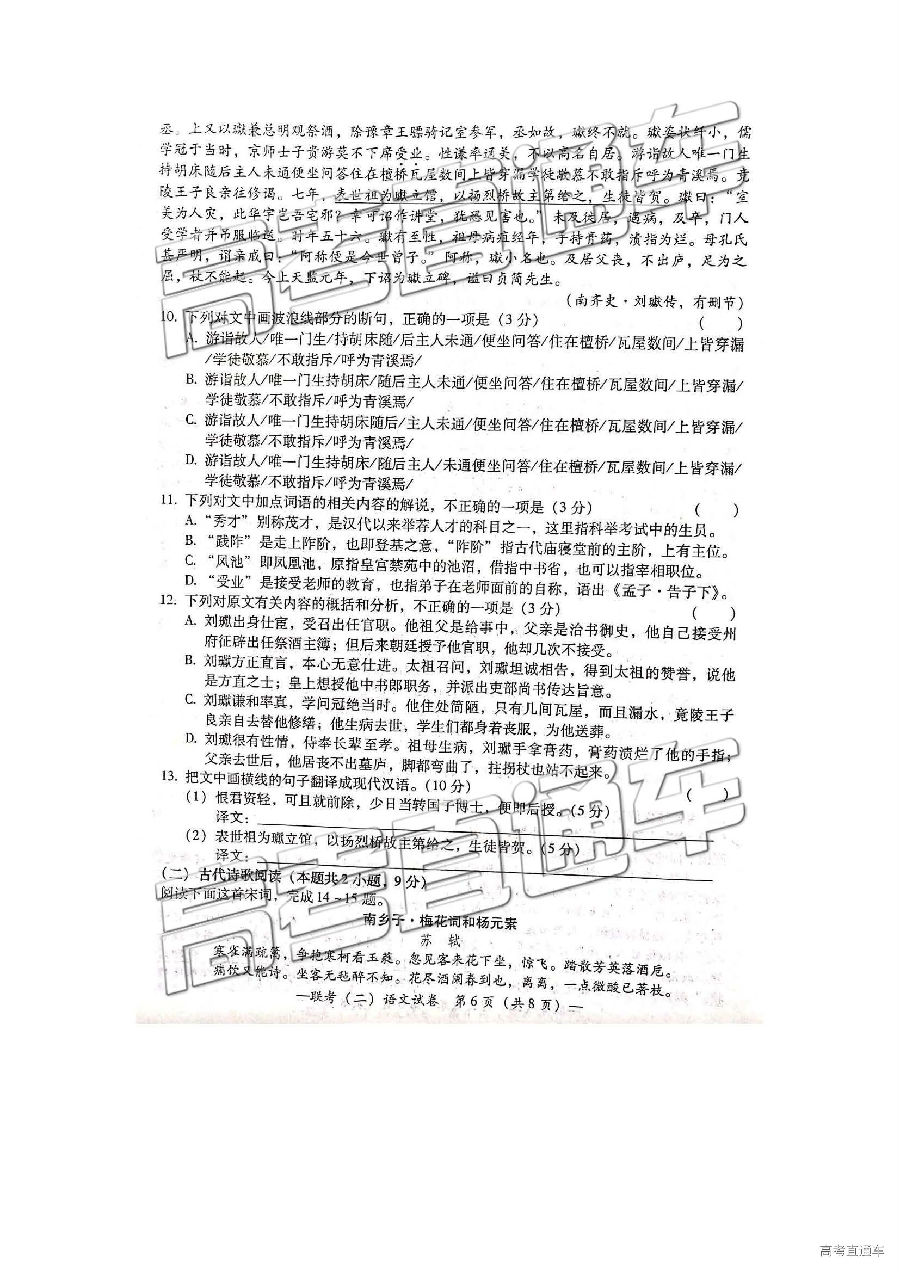 丞。上又以瓛兼总明观祭酒，除豫章王骠骑记室参军，丞如故，瓛终不就。瓛姿状纤小，儒
学冠于当时，京师士子贵游莫不下席受业。性谦率通美，不以高名自居，游诣故人唯一门生
持胡床随后主人未通便坐问答住在檀桥瓦屋数间上皆穿漏学徒敬慕不敢指斥呼为青溪焉。竟
陵王子良亲往修谒。七年，表世祖为瓛立馆，以扬烈桥故主第给之，生徒皆贺。瓛曰：“室
美为人灾，此华宇岂吾宅邪？幸可诏作讲堂，犹恐见害也。”未及徙居，遇病，及卒，门人
受学者并吊服临送。时年五十六。瓛有至性，祖母病疽经年，手持膏药，渍指为烂。母孔氏
甚严明，谓亲戚曰：“阿称便是今世曾子。”阿称，瓛小名也。及居父丧，不出庐，足为之
屈，杖不能起。今上天监元年，下诏为瓛立碑，谥曰贞简先生。
（南齐史·刘瓛传，有删节）
10. 下列对文中画波浪线部分的断句，正确的一项是（3 分） （ ）
A. 游诣故人/唯一门生/持胡床随/后主人未通/便坐问答/住在檀桥/瓦屋数间/上皆穿漏
/学徒敬慕/不敢指斥/呼为青溪焉/
B. 游诣故人/唯一门生持胡床/随后主人未通/便坐问答/住在檀桥/瓦屋数间/上皆穿漏/
学徒敬慕/不敢指斥/呼为青溪焉/
C. 游诣故人/唯一门生持胡床随后/主人未通/便坐问答/住在檀桥/瓦屋数间/上皆穿漏/
学徒敬慕/不敢指斥/呼为青溪焉/
D. 游诣故人/唯一门生持胡床/随后主人/未通便坐问答/住在檀桥/瓦屋数间/上皆穿漏/
学徒敬慕/不敢指斥/呼为青溪焉/
11. 下列对文中加点词语的相关内容的解说，不正确的一项是（3 分） （ ）
A. “秀才”别称茂才，是汉代以来举荐人才的科目之一，这里指科举考试中的生员。
B. “践阼”是走上阼阶，也即登基之意，“阼阶”指古代庙寝堂前的主阶，上有主位。
C. “凤池”即凤凰池，原指皇宫禁苑中的池沼，借指中书省，也可以指宰相职位。
D. “受业”是接受老师的教育，也指弟子在老师面前的自称，语出《孟子·告子下》。
12. 下列对原文有关内容的概括和分析，不正确的一项是（3 分） （ ）
A. 刘瓛出身仕宦，受召出任官职。他祖父是给事中，父亲是治书御史，他自己接受州
府征辟出任祭酒主簿；但后来朝廷授予他官职，他却几次不接受。
B. 刘瓛方正直言，本心无意仕进。太祖召问，刘瓛坦诚相告，得到太祖的赞誉，说他
是方直之士；皇上想授他中书郎职务，并派出吏部尚书传达旨意。
C. 刘瓛谦和率真，学问冠绝当时。他住处简陋，只有几间瓦屋，而且漏水，竟陵王子
良亲自去替他修缮；他生病去世，学生们都身着丧服，为他送葬。
D. 刘瓛很有性情，侍奉长辈至孝。祖母生病，刘瓛手拿膏药，膏药溃烂了他的手指；
父亲去世后，他居丧不出墓庐，脚都弯曲了，拄拐杖也站不起来。
13. 把文中画横线的句子翻译成现代汉语。（10 分） （ ）
（1）恨君资轻，可且就前除，少日当转国子博士，便即后授。（5 分）
译文：
（2）表世祖为瓛立馆，以扬烈桥故主第给之，生徒皆贺。（5 分）
译文：
（二）古代诗歌阅读（本题共 2 小题，9 分）
阅读下面这首宋词，完成 14～15 题。
南乡子·梅花词和杨元素
苏 轼
寒雀满疏篱，争抱寒柯看玉蕤。忽见客来花下坐，惊飞。踏散芳英落酒卮。
痛饮又能诗。坐客无毡醉不知。花尽酒阑春到也，离离，一点微酸已著枝。
—联考（二）语文试卷 第 6 页（共 8 页）—
高考直通车
高考直通车
高考直通车